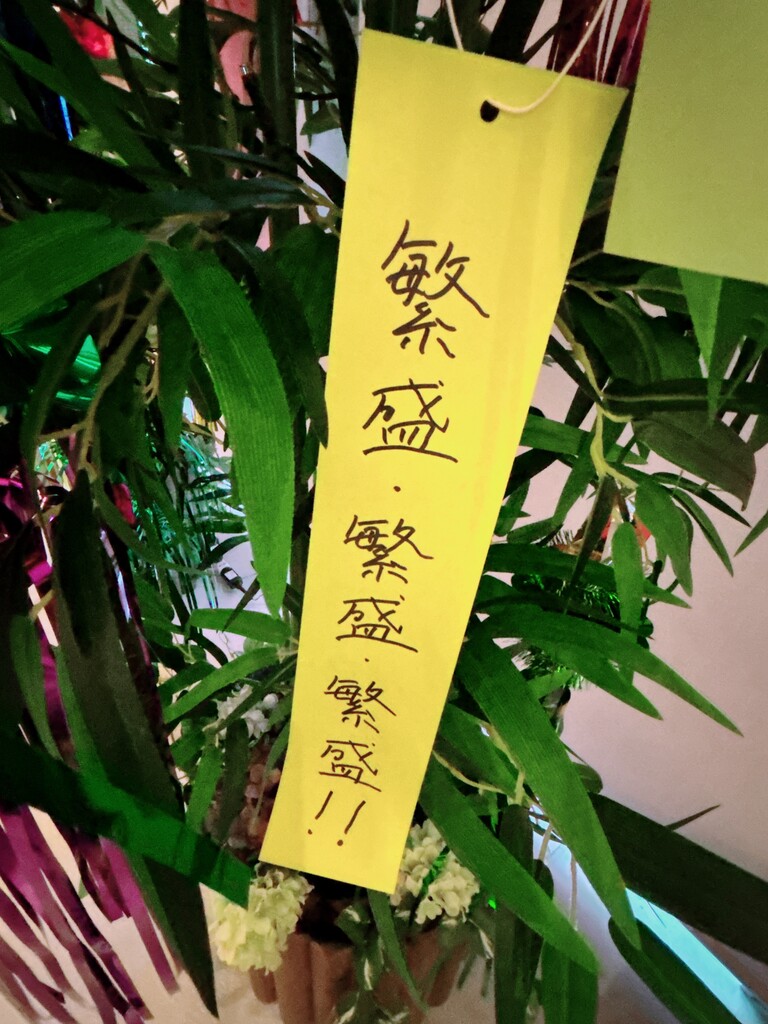 繁盛・繁盛・繁盛!!